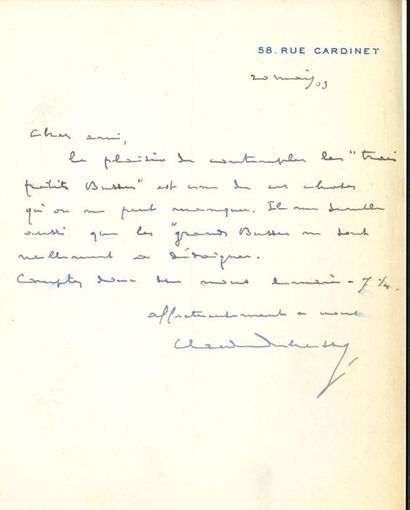 58. RUE CARDINET
20 mai, 03
Cher ami,
Le plaisir de contempler les "trois
petits Busser" est une de ces choses
qu'on ne peut manquer. Il me semble
aussi que les "grands Busser ne sont
nullement à dédaigner.
Comptez donc sur nous demain - 7 1/4.
affectueusement à vous
Claude Debussy